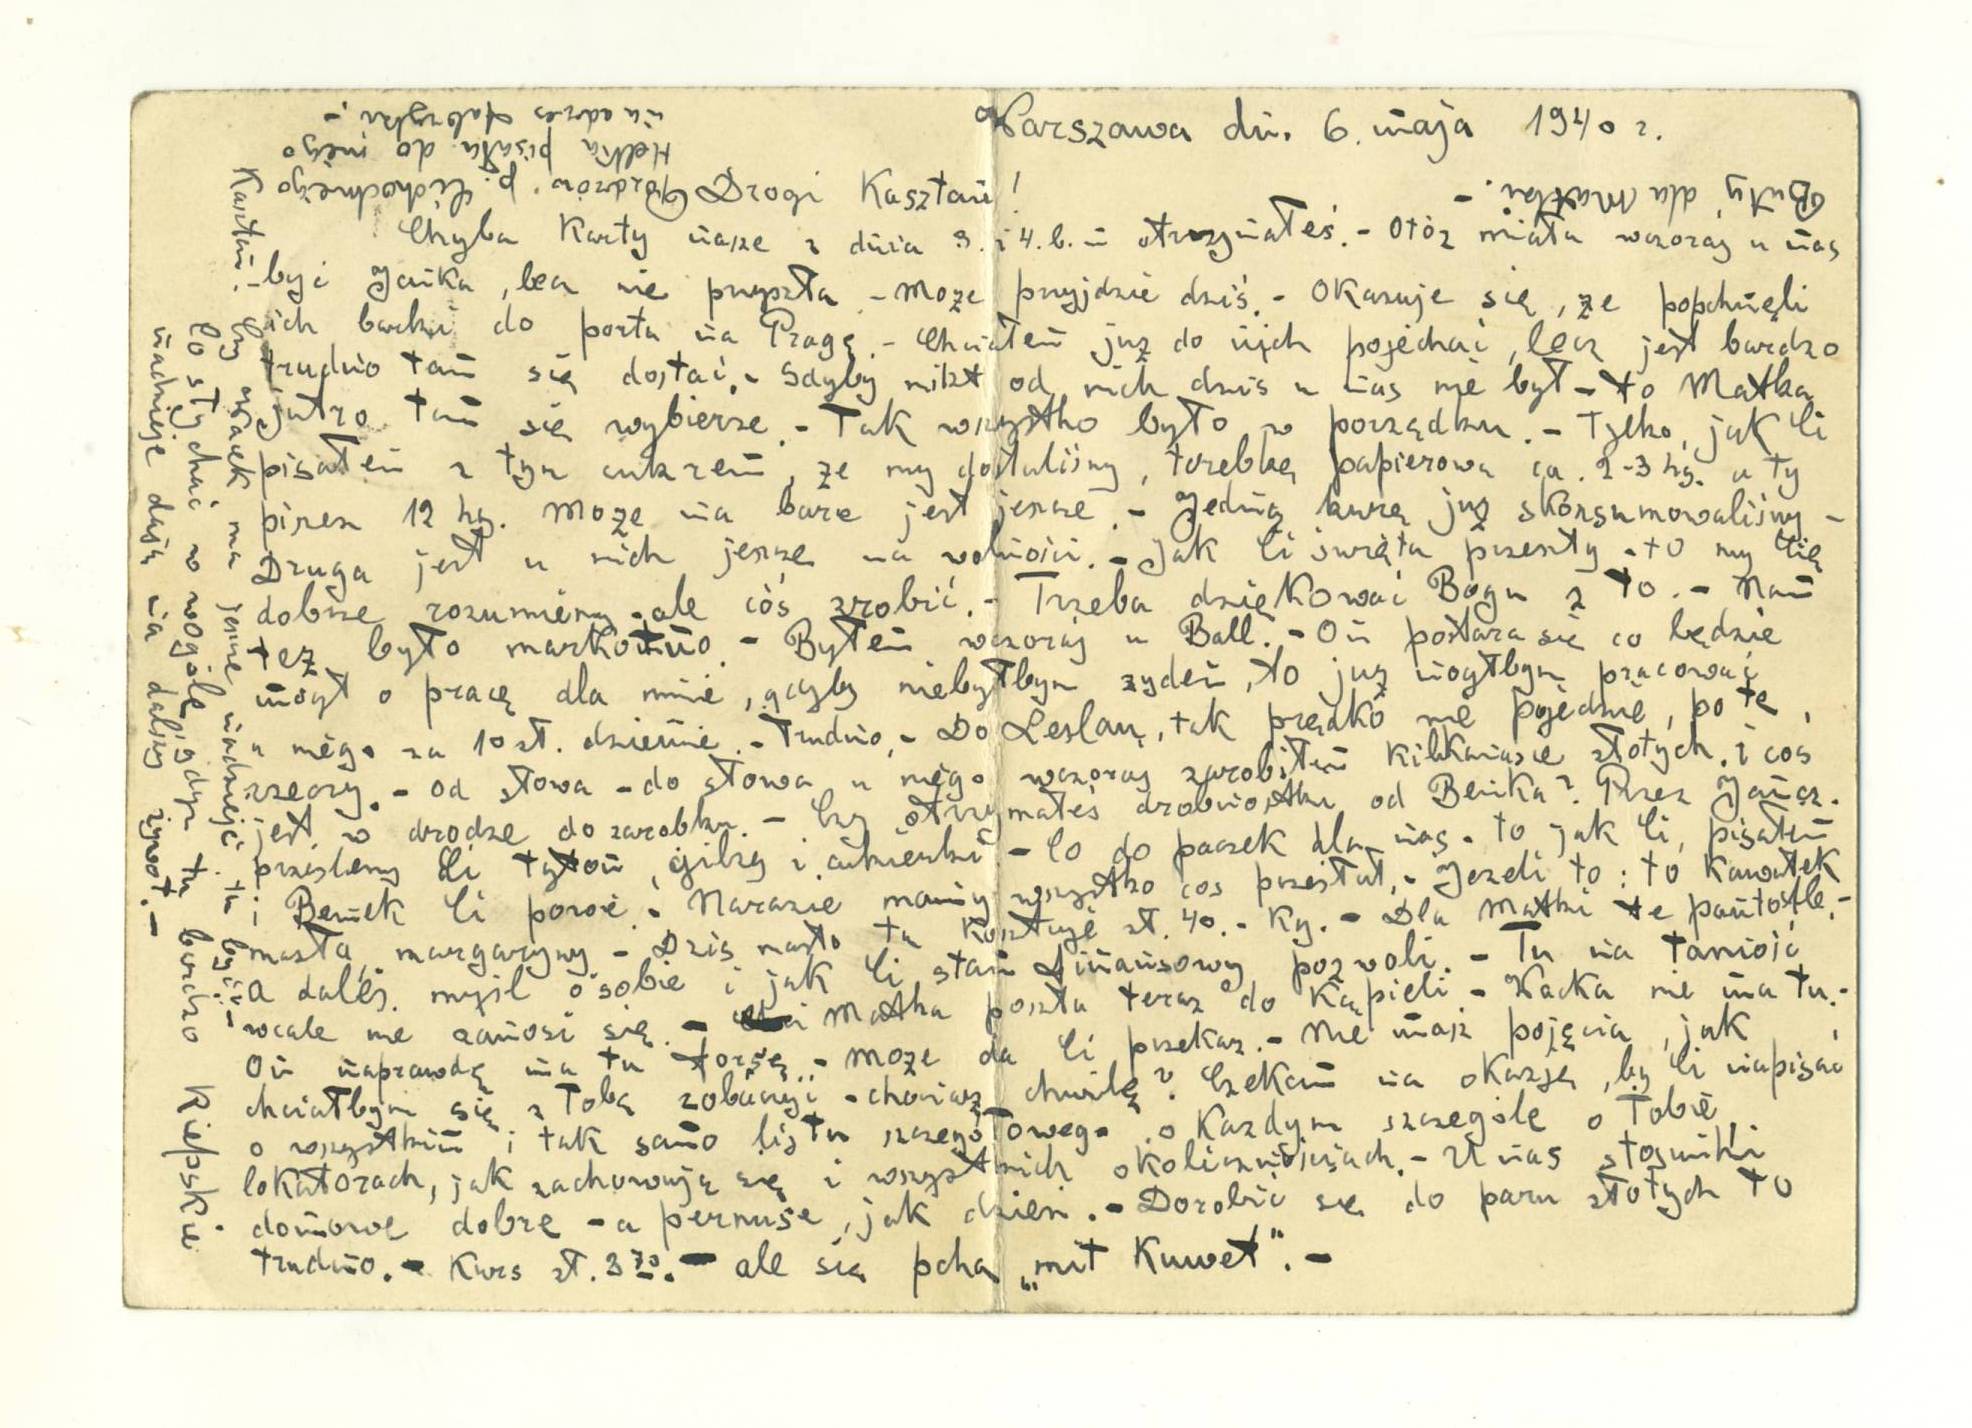 Warszawa dn. 6. maja 1940 r.
Drogi Kasztan!
Chyba Karty nasze z dnia 3. i 4. b. m otrzymałeś. - Otóż miała wczoraj u nas
być Janka, lecz nie przyszła. - Może przyjdzie dziś. - Okazuje się, że popchnęli
ich barki do portu na Pragę. - Chciałem już do nich pojechać, lecz jest bardzo
trudno tam się dostać. - Gdyby nikt od nich dziś u nas nie był - to Matka
jutro tam się wybierze. - Tak wszystko było w porządku. - Tylko, jak Ci
pisałem z tym cukrem, że my dostaliśmy, torebkę papierową ca. 2-3 kg. a ty
piszesz 12 kg. Może na barce jest jeszcze. - Jedną kurę już skonsumowaliśmy -
Druga jest u nich jeszcze na wolności. - Jak Ci święta przeszły - to my Cię
dobrze rozumiemy - ale cóś zrobić. - Trzeba dziękować Bogu z to. - Nam
też było markotno. - Byłem wczoraj u Ball. - On postara się co będzie
mógł o pracę dla mnie, gdyby niebyłbym żydem, to już mógłbym pracować
u niego za 10 zł. dziennie. - Trudno. - Do Lesława, tak prędko nie pojedzie, po te
rzeczy. - Od słowa - do słowa u niego wczoraj zarobiłem kilkanaście złotych. i coś
jest w drodze do zarobku. - Czy otrzymałeś drobnostkę od Benka? Przez Janka.
prześlemy Ci tytoń, gilzy i cukierki - Co do paczek dla nas - to jak Ci, pisałem
i Beniek Ci powie. Narazie mamy wszystko coś przesłał. - Jeżeli to: to kawałek
masła, margaryny - Dziś masło tu kosztuje zł. 40. - Kg. - Dla Matki te pantofle. -
A dalej. myśl o sobie i jak Ci stan finansowy pozwoli. - Tu na taniość
wcale nie zanosi się. - Matka poszła teraz do Kąpieli - Wacka nie ma tu. -
On naprawdę ma tu forsę. - Może da Ci przekaz. - Nie masz pojęcia, jak
chciałbym się z Tobą zobaczyć - chociaż chwilę? Czekam na okazję, by Ci napisać
o wszystkim i tak samo listu szczegółowego o każdym szczególe o Tobie,
lokatorach, jak zachowują się i wszystkich okolicznościach. - U nas stosunki
domowe dobre - a pernusze, jak dzień. - Dorobić się do paru złotych to
trudno. - Kurs zł. 3 70. - ale się pcha „mit Kuwet". -
Buty dla Matki. -
p. Cichockiego
Helka pisała do niego
na adres fabryki. -
Kasztan! - Czy Wacek ma jeszcze nadzieję tu być? -
Co słychać w wogóle, gdyż tu bardzo Kiepskie
nadzieje dają na dalszy żywot. -